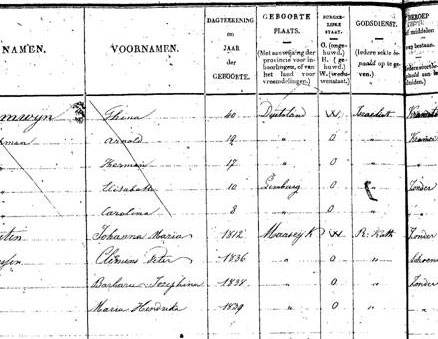 NAMEN. VOORNAMEN. DAGTEEKENING en JAAR der GEBOORTE. GEBOORTE PLAATS. (Met aanwijzing der provincie voor inboorlingen, of van het land voor vreemdelingen.) BURGERLIJKE STAAT. O. (ongehuwd.) H. (gehuwd.) W. (weduwenstaat.) GODSDIENST. (Iedere sekte bepaald op te geven.) BEROEP
Thina 40 Duitsland W Israelit
Arnold 19 " O "
Herman 17 " O "
Elisabeth 10 Limburg O Zonder
Carolina 8 " O
Johanna Maria 1812 Maaseyk W R. Kath
Clemens Peter 1836 " O "
Barbara Josephina 1834 " O " Zonder
Maria Hendrika 1839 " O "